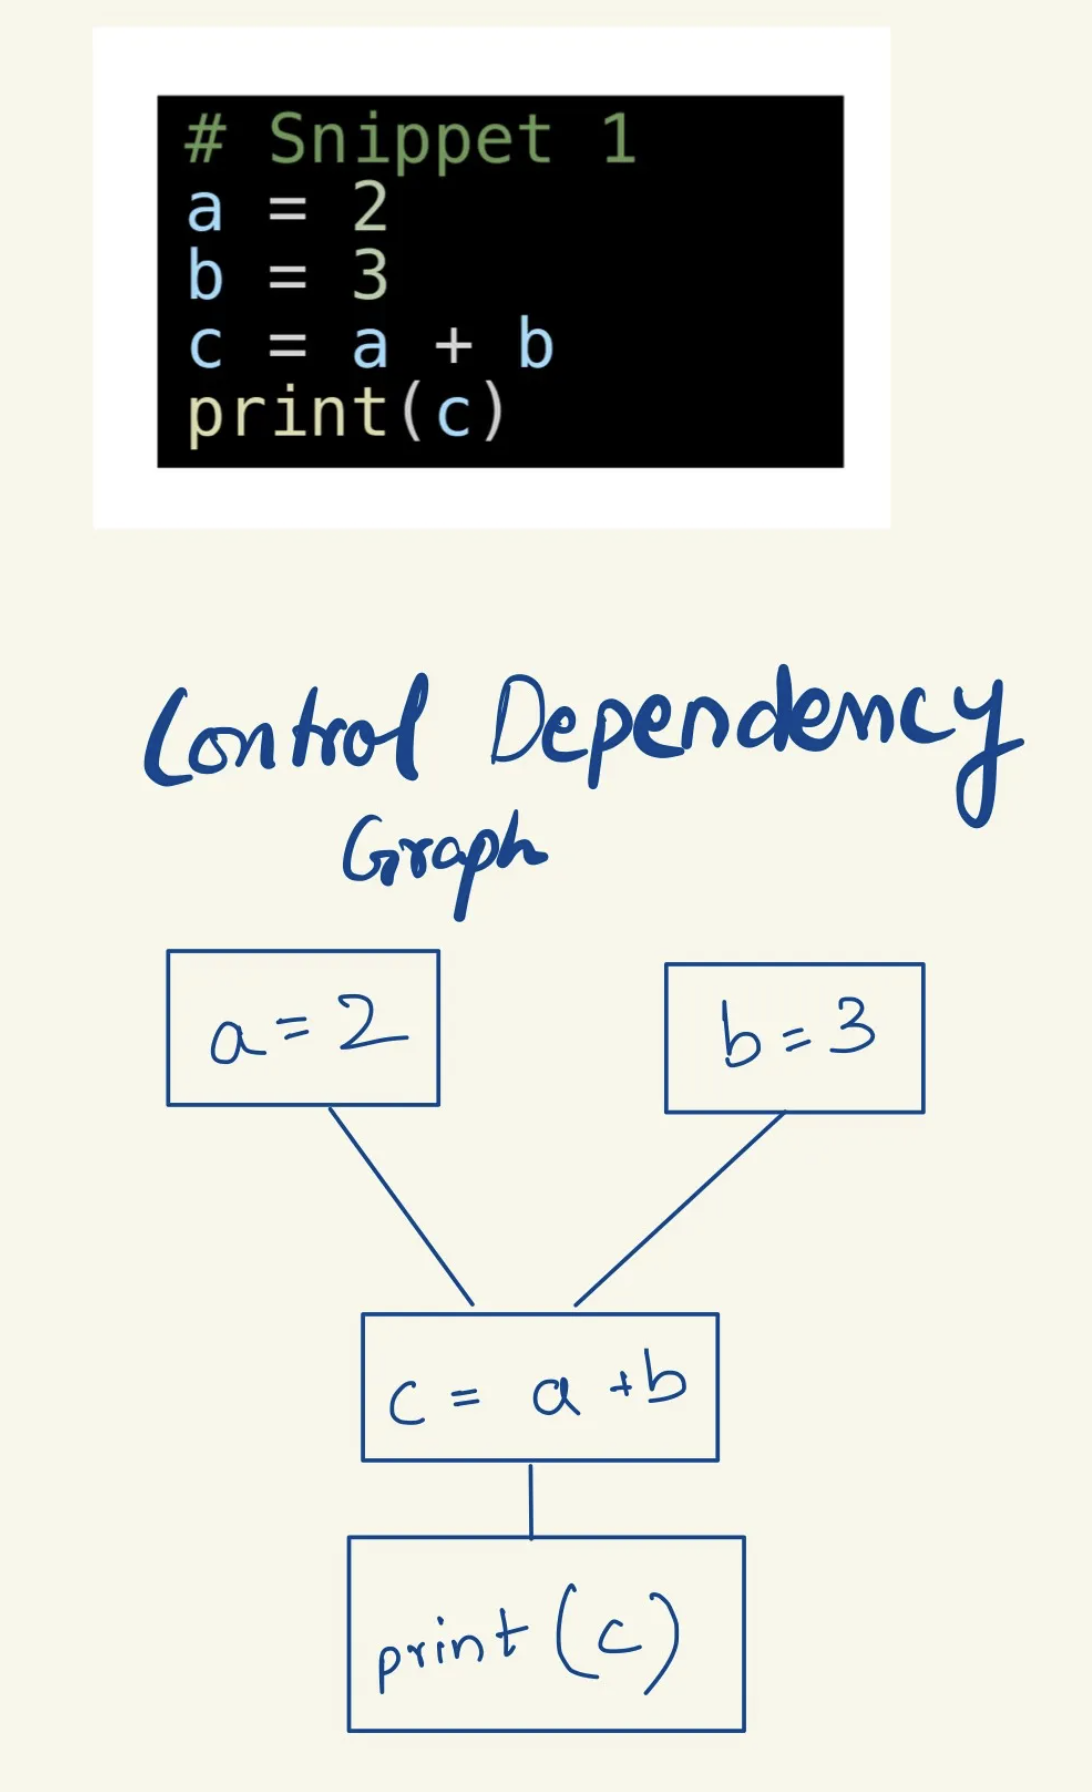 # Snippet 1
a = 2
b = 3
c = a + b
print(c)
Control Dependency
Graph
a = 2
b = 3
c = a + b
print (c)